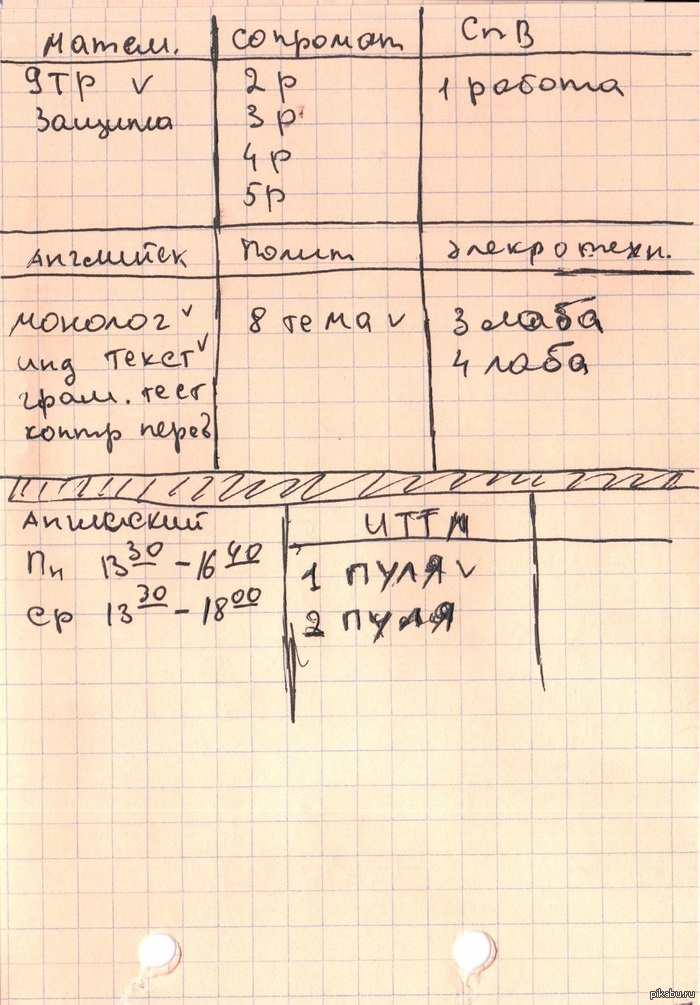 матем.
9ТР v
Защита
сопромат
2 р
3 р
4 р
5р
СпВ
1 работа
Английск
монолог v
инд текст v
грам. тест
контр перев
Полит
8 тема v
элекротехн.
3 лаба
4 лаба
Английский
Пн 13 30 - 16 40
Ср 13 30 - 18 00
ИТТМ
1 ПУЛЯ v
2 ПУЛЯ
pikabu.ru